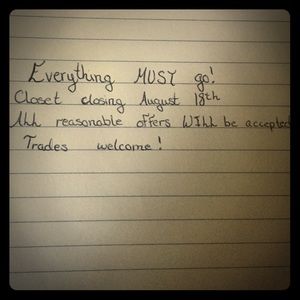 Everything MUST go!
Closet closing August 18th
All reasonable offers WILL be accepted
Trades welcome!